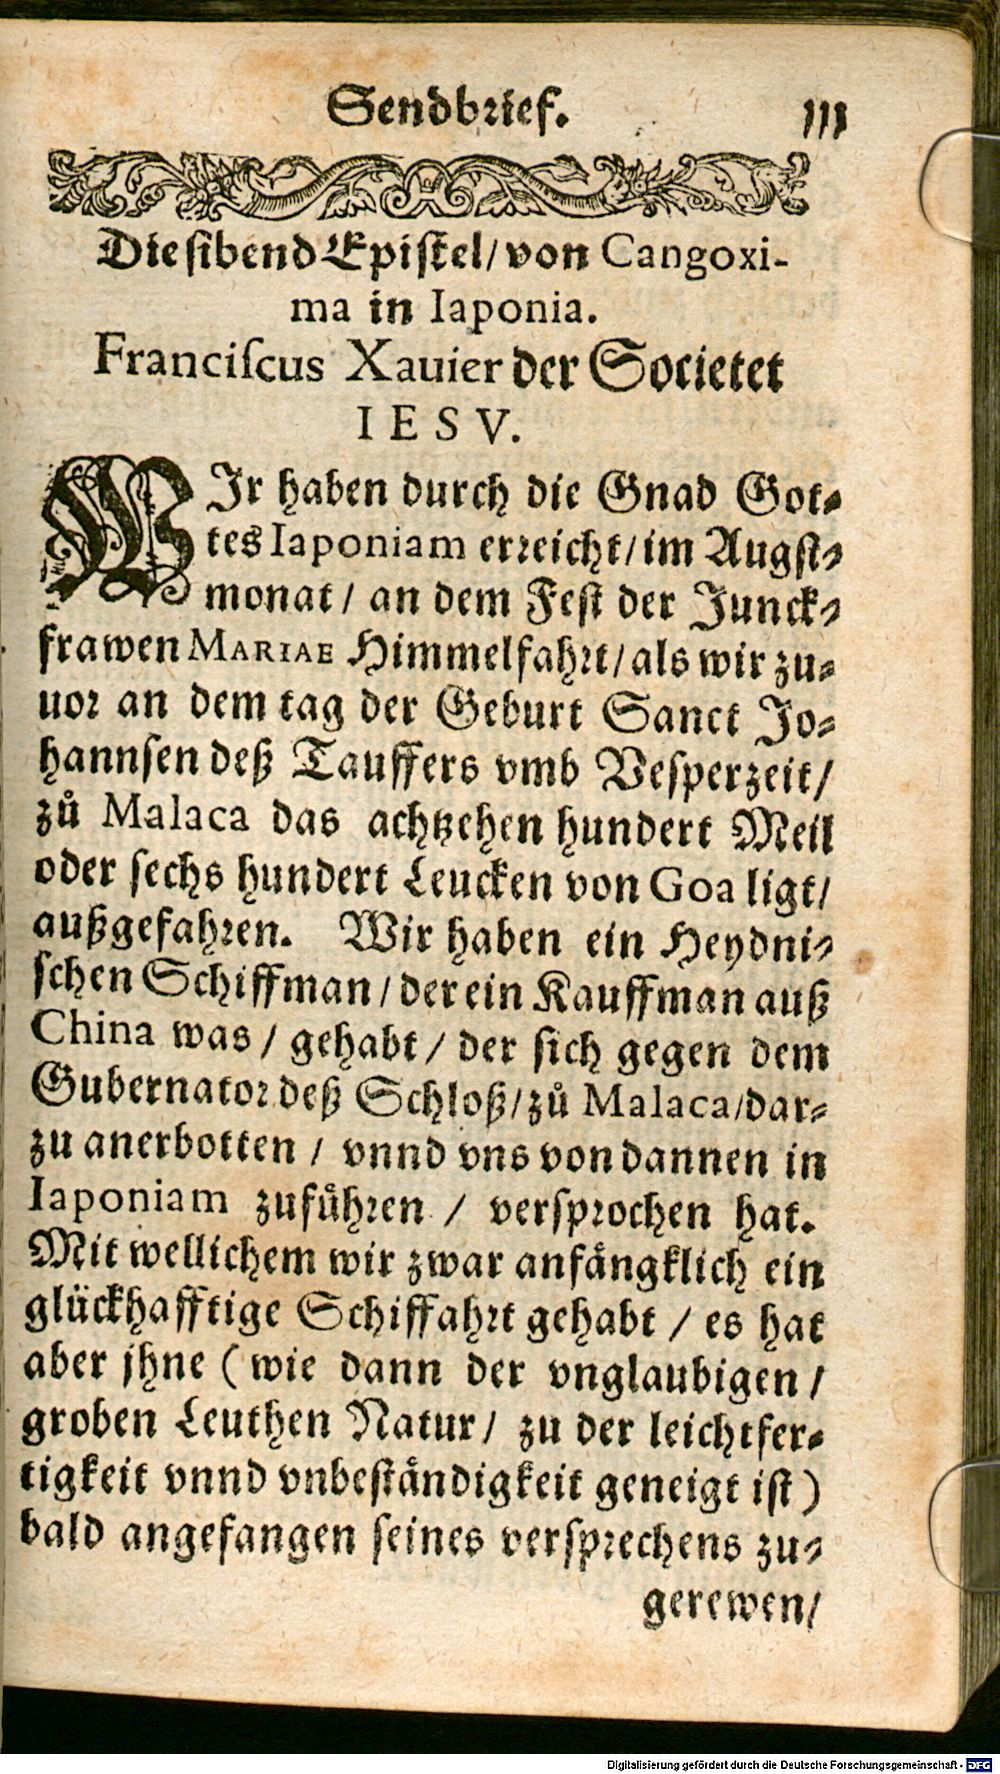 Sendbrief. 111
Die sibend Epistel/ von Cangoxi-
ma in Iaponia.
Franciſcus Xauier der Societet
IESV.
WIr haben durch die Gnad Got-
tes Iaponiam erreicht/ im Augst-
monat/ an dem Fest der Junck-
frawen MARIAE Himmelfahrt/ als wir zu-
uor an dem tag der Geburt Sanct Jo-
hannsen deß Tauffers vmb Vesperzeit/
zů Malaca das achtzehen hundert Meil
oder sechs hundert Leucken von Goa ligt/
außgefahren. Wir haben ein Heydni-
schen Schiffman/ der ein Kauffman auß
China was/ gehabt/ der sich gegen dem
Gubernator deß Schloß/ zů Malaca/ dar-
zu anerbotten/ vnnd vns von dannen in
Iaponiam zufůhren/ versprochen hat.
Mit wellichem wir zwar anfängklich ein
glückhafftige Schiffahrt gehabt/ es hat
aber jhne (wie dann der vnglaubigen/
groben Leuthen Natur/ zu der leichtfer-
tigkeit vnnd vnbeständigkeit geneigt ist)
bald angefangen seines versprechens zu-
gerewen/
Digitalisierung gefördert durch die Deutsche Forschungsgemeinschaft - DFG